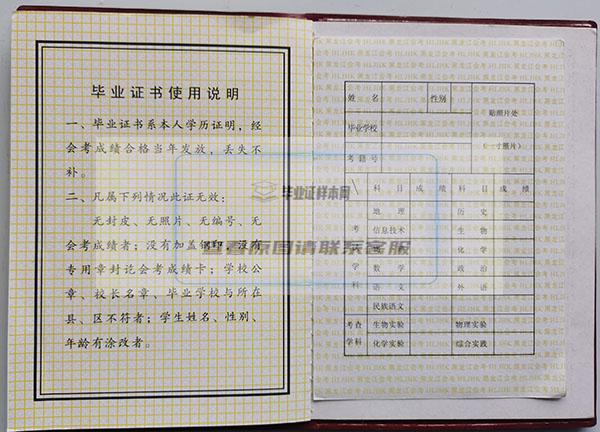 毕业证书使用说明
一、毕业证书系本人学历证明，经
会考成绩合格当年发放，丢失不
补。
二、凡属下列情况此证无效：
无封皮、无照片、无编号、无
会考成绩者；没有加盖钢印，没有
专用章封讫会考成绩卡；学校公
章、校长名章、毕业学校与所在
县、区不符者；学生姓名、性别、
年龄有涂改者。
毕业证样本网
查看原图请联系客服
黑龙江会考 HLJHK
姓 名 性别 贴照片处
毕业学校 (一寸照片)
考籍号
科 目 成 绩 科 目 成 绩
考 地 理 历 史
信息技术 生 物
化 学
数 学 政 治
科 语 文 外 语
民族语文
考查 生物实验 物理实验
学科 化学实验 综合实践